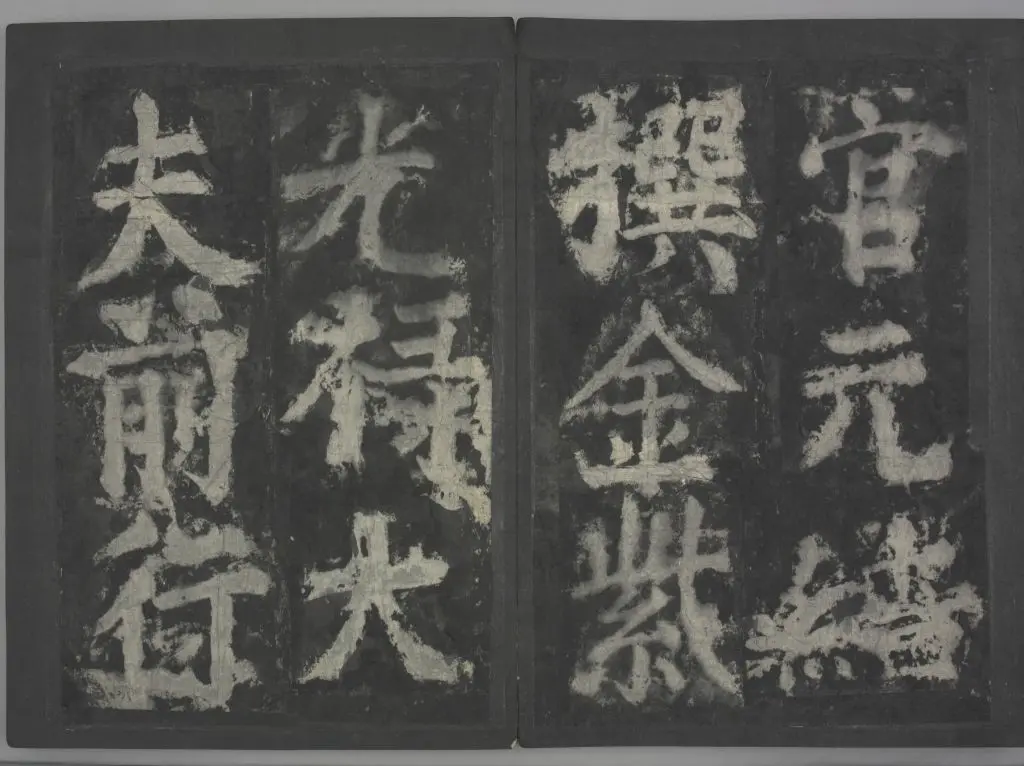 官元結
撰金紫
光祿大
夫前行